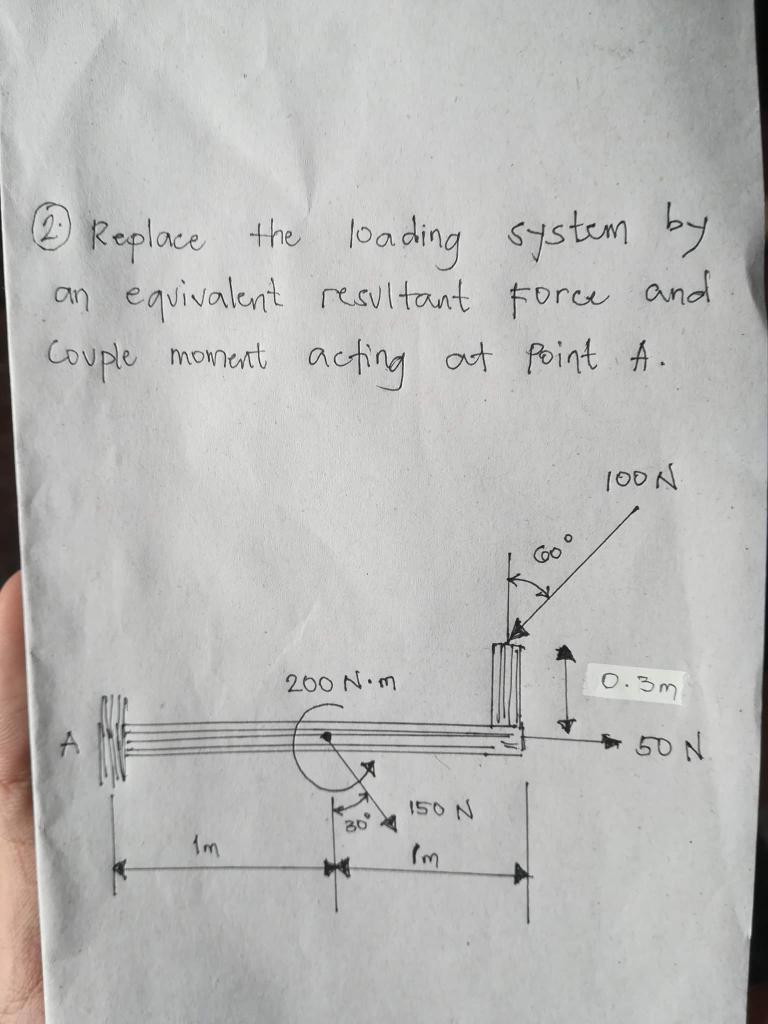 2. Replace the loading system by
an equivalent resultant Force and
Couple moment acting at Point A.
100 N
60°
200 N·m
0.3m
A
50 N
150 N
30°
1m
1m